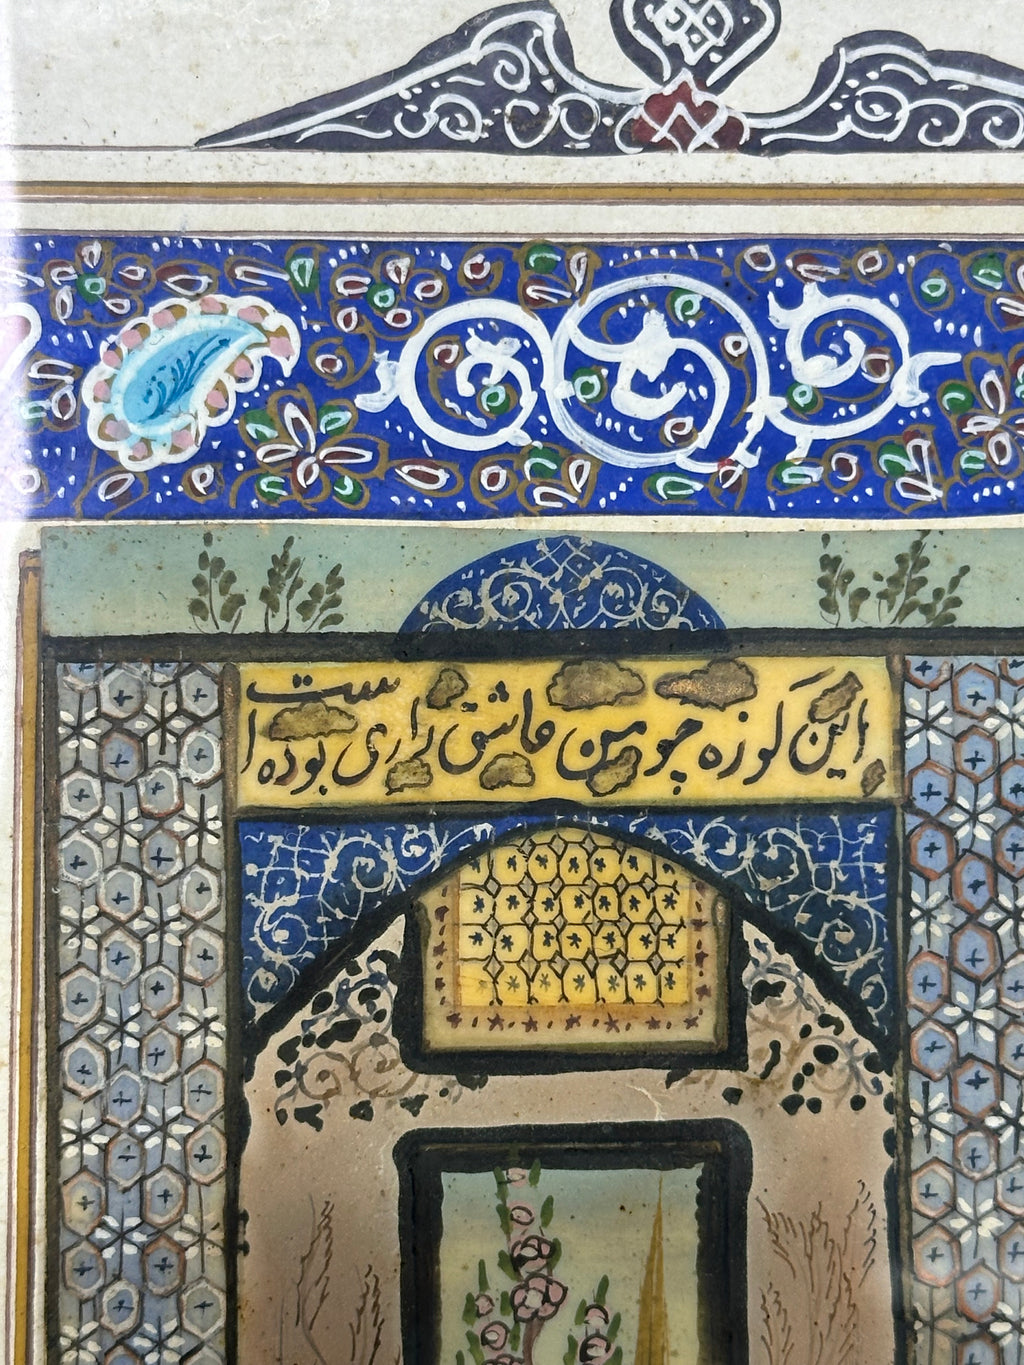 این کوزه چو من عاشق زاری بوده است